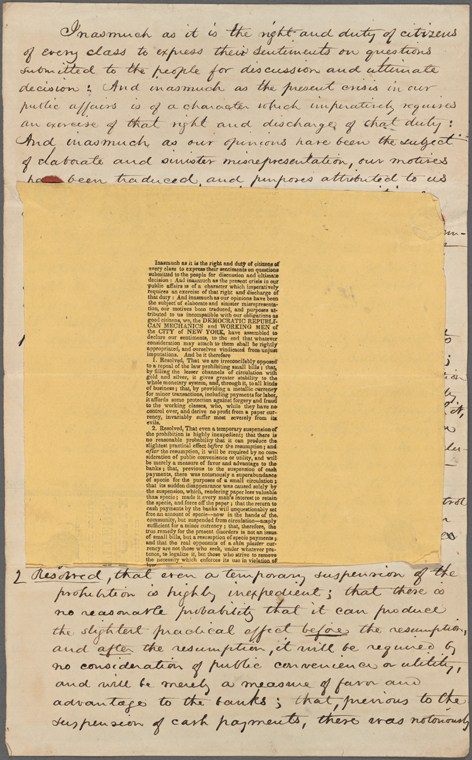 Inasmuch as it is the right and duty of citizens
of every class to express their sentiments on questions
submitted to the people for discussion and ultimate
decision; And inasmuch as the present crisis in our
public affairs is of a character which imperatively requires
an exercise of that right and discharge of that duty:
And inasmuch as our opinions have been the subject
of elaborate and sinister misrepresentation, our motives
been traduced, and purposes attributed to us
Inasmuch as it is the right and duty of citizens of
every class to express their sentiments on questions
submitted to the people for discussion and ultimate
decision: And inasmuch as the present crisis in our
public affairs is of a character which imperatively
requires an exercise of that right and discharge of
that duty: And inasmuch as our opinions have been
the subject of elaborate and sinister misrepresentation,
our motives been traduced, and purposes at-
tributed to us incompatible with our obligations as
good citizens, we, the DEMOCRATIC REPUBLI-
CAN MECHANICS and WORKING MEN of
the CITY OF NEW YORK, have assembled to
declare our sentiments, to the end that whatever
consideration may attach to them shall be rightly
appropriated, and ourselves vindicated from unjust
imputations. And be it therefore
1. Resolved, That we are irreconcilably opposed
to a repeal of the law prohibiting small bills; that,
by filling the lesser channels of circulation with
gold and silver, it gives greater stability to the
whole monetary system, and, through it, to all kinds
of business; that, by providing a metallic currency
for minor transactions, including payments for labor,
it affords some protection against forgery and fraud
to the working classes, who, while they have no
control over, and derive no profit from a paper cur-
rency, invariably suffer most severely from its
evils.
2. Resolved, That even a temporary suspension of
the prohibition is highly inexpedient; that there is
no reasonable probability that it can produce the
slightest practical effect before the resumption; and
after the resumption, it will be required by no con-
sideration of public convenience or utility, and will
be merely a measure of favor and advantage to the
banks; that, previous to the suspension of cash
payments, there was notoriously a superabundance
of specie for the purposes of a small circulation;
that its sudden disappearance was caused solely by
the suspension, which, rendering paper less valuable
than specie, made it every man's interest to retain
the specie, and force off the paper; that the return to
cash payments by the banks will unquestionably set
free an amount of specie—now in the hands of the
community, but suspended from circulation—amply
sufficient for a minor currency; that, therefore, the
true remedy for the present disorders is not an issue
of small bills, but a resumption of specie payments;
and that the real opponents of a shin plaster cur-
rency are not those who seek, under whatever pre-
tence, to legalize it, but those who strive to remove
the necessity which enforces its use in violation of
2 Resolved, that even a temporary suspension of the
prohibition is highly inexpedient; that there is
no reasonable probability that it can produce
the slightest practical effect before the resumption,
and after the resumption, it will be required by
no consideration of public convenience or utility,
and will be merely a measure of favor and
advantage to the banks; that, previous to the
suspension of cash payments, there was notoriously